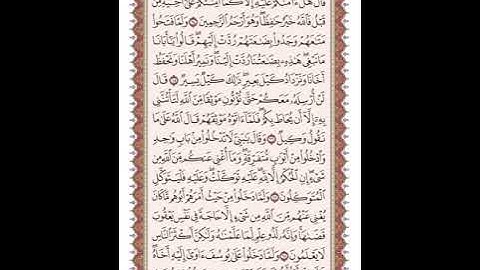 قَالَ هَلْ ءَامَنُكُمْ عَلَيْهِ إِلَّا كَمَآ أَمِنتُكُمْ عَلَىٰٓ أَخِيهِ مِن
قَبْلُ فَٱللَّهُ خَيْرٌ حَٰفِظًا وَهُوَ أَرْحَمُ ٱلرَّٰحِمِينَ ۝ وَلَمَّا فَتَحُوا۟
مَتَٰعَهُمْ وَجَدُوا۟ بِضَٰعَتَهُمْ رُدَّتْ إِلَيْهِمْ قَالُوا۟ يَٰٓأَبَانَا
مَا نَبْغِى هَٰذِهِۦ بِضَٰعَتُنَا رُدَّتْ إِلَيْنَا وَنَمِيرُ أَهْلَنَا وَنَحْفَظُ
أَخَانَا وَنَزْدَادُ كَيْلَ بَعِيرٍ ذَٰلِكَ كَيْلٌ يَسِيرٌ ۝ قَالَ
لَنْ أُرْسِلَهُۥ مَعَكُمْ حَتَّىٰ تُؤْتُونِ مَوْثِقًا مِّنَ ٱللَّهِ لَتَأْتُنَّنِى
بِهِۦٓ إِلَّآ أَن يُحَاطَ بِكُمْ فَلَمَّآ ءَاتَوْهُ مَوْثِقَهُمْ قَالَ ٱللَّهُ عَلَىٰ مَا
نَقُولُ وَكِيلٌ ۝ وَقَالَ يَٰبَنِىَّ لَا تَدْخُلُوا۟ مِنۢ بَابٍ وَٰحِدٍ
وَٱدْخُلُوا۟ مِنْ أَبْوَٰبٍ مُّتَفَرِّقَةٍ وَمَآ أُغْنِى عَنكُم مِّنَ ٱللَّهِ مِن
شَىْءٍ إِنِ ٱلْحُكْمُ إِلَّا لِلَّهِ عَلَيْهِ تَوَكَّلْتُ وَعَلَيْهِ فَلْيَتَوَكَّلِ
ٱلْمُتَوَكِّلُونَ ۝ وَلَمَّا دَخَلُوا۟ مِنْ حَيْثُ أَمَرَهُمْ أَبُوهُم مَّا كَانَ
يُغْنِى عَنْهُم مِّنَ ٱللَّهِ مِن شَىْءٍ إِلَّا حَاجَةً فِى نَفْسِ يَعْقُوبَ
قَضَىٰهَا وَإِنَّهُۥ لَذُو عِلْمٍ لِّمَا عَلَّمْنَٰهُ وَلَٰكِنَّ أَكْثَرَ ٱلنَّاسِ
لَا يَعْلَمُونَ ۝ وَلَمَّا دَخَلُوا۟ عَلَىٰ يُوسُفَ ءَاوَىٰٓ إِلَيْهِ أَخَاهُ